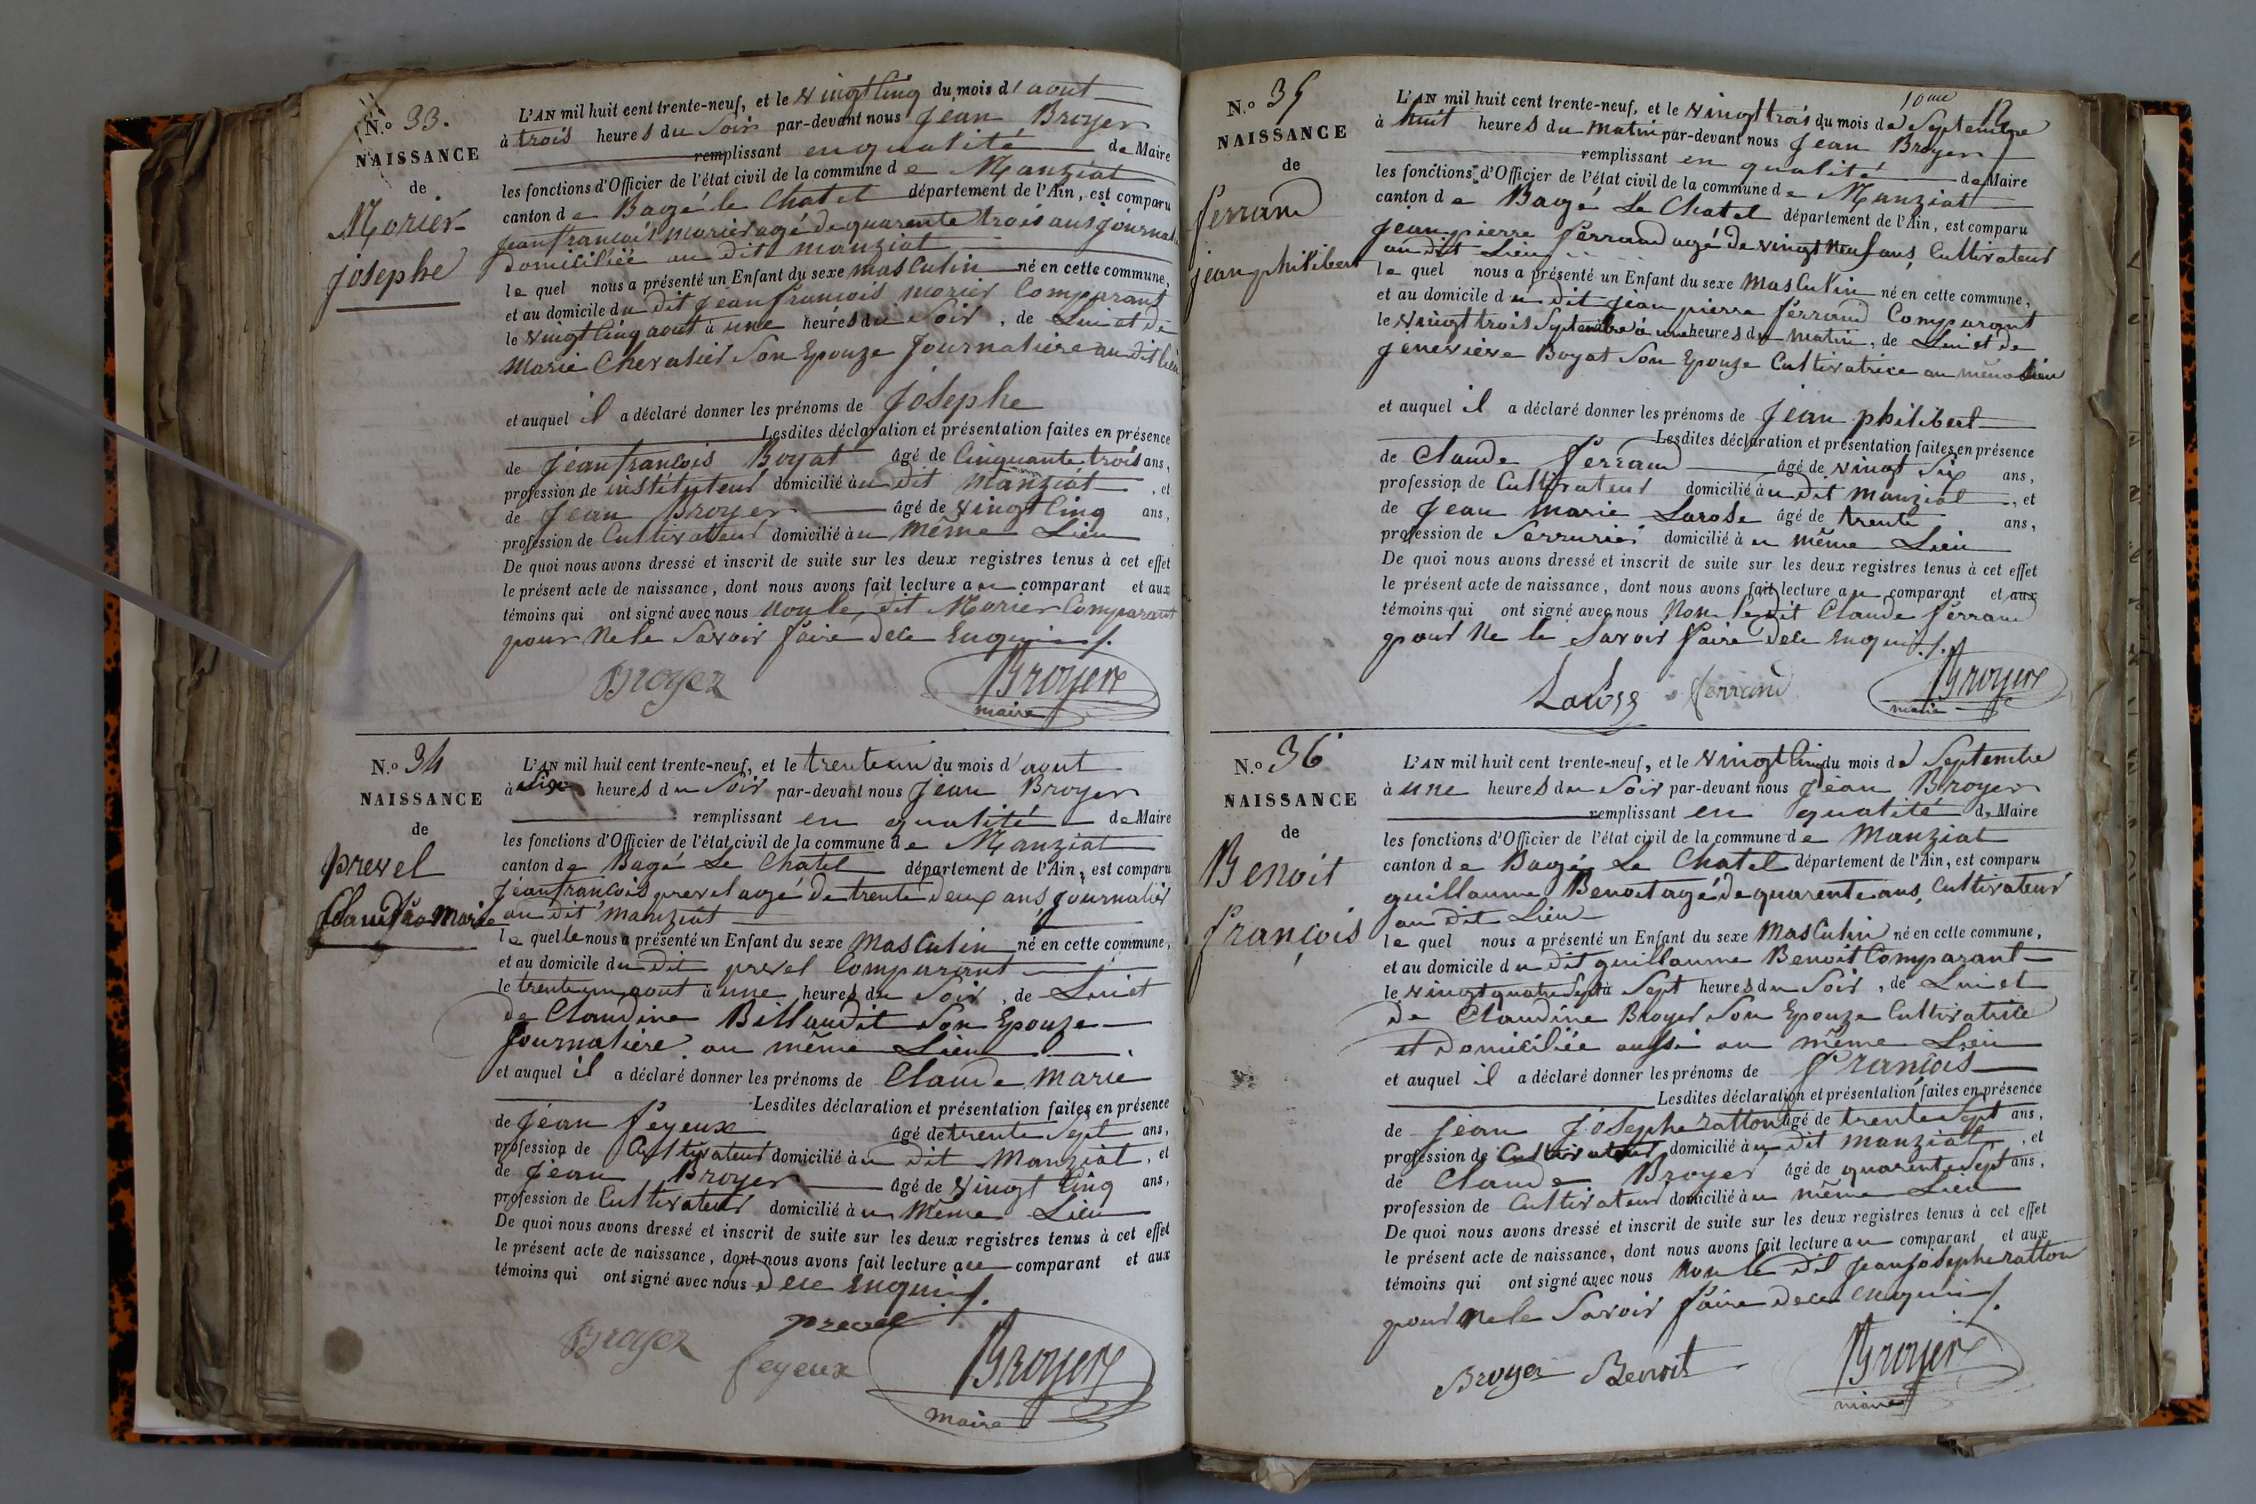 N.o 33.
NAISSANCE
de
Morier
Josephe
L'AN mil huit cent trente-neuf, et le vingt cinq du mois d'aout
à trois heures du Soir par-devant nous Jean Broyer
remplissant en qualité de Maire
les fonctions d'Officier de l'état civil de la commune de Manziat
canton de Bagé le Chatel département de l'Ain, est comparu
Jean françois morier agé de quarente trois ans Journalier
domiciliée au dit manziat
le quel nous a présenté un Enfant du sexe masculin né en cette commune,
et au domicile du dit Jean francois morier Comparant
le vingt cinq aout à une heures du Soir, de Lui et de
Marie Chevalier Son Epouze Journaliere au dit lieu
et auquel il a déclaré donner les prénoms de Josephe
Lesdites déclaration et présentation faites en présence
de Jean francois Boyat âgé de Cinquante trois ans,
profession de instituteur domicilié au dit manziat, et
de Jean Broyer âgé de vingt Cinq ans,
profession de Cultivateur domicilié au même Lieu
De quoi nous avons dressé et inscrit de suite sur les deux registres tenus à cet effet
le présent acte de naissance, dont nous avons fait lecture au comparant et aux
témoins qui ont signé avec nous non le dit Morier Comparant
pour ne le Savoir faire de ce Enquis ./.
Broyer
Broyer
maire
N.o 34
NAISSANCE
de
prevel
Claude Marie
L'AN mil huit cent trente-neuf, et le trente un du mois d'aout
à Six heures du Soir par-devant nous Jean Broyer
remplissant en qualité de Maire
les fonctions d'Officier de l'état civil de la commune de Manziat
canton de Bagé Le Chatel département de l'Ain, est comparu
Jean francois prevel agé de trente deux ans Journalier
au dit manziat
le quelle nous a présenté un Enfant du sexe masculin né en cette commune,
et au domicile du dit prevel Comparant
le trente un aout à une heures du Soir, de Lui et
de Claudine Billaudit Son Epouze
Journaliere au même Lieu
et auquel il a déclaré donner les prénoms de Claude Marie
Lesdites déclaration et présentation faites en présence
de Jean feyeux âgé de trente Sept ans,
profession de Cultivateur domicilié au dit Manziat, et
de Jean Broyer âgé de vingt Cinq ans,
profession de Cultivateur domicilié au même Lieu
De quoi nous avons dressé et inscrit de suite sur les deux registres tenus à cet effet
le présent acte de naissance, dont nous avons fait lecture au comparant et aux
témoins qui ont signé avec nous de ce enquis ./.
prevel
Broyer
feyeux
Broyer
maire
N.o 35
NAISSANCE
de
ferrand
jean philibert
10me
L'AN mil huit cent trente-neuf, et le vingt trois du mois de Septembre
à huit heures du matin par-devant nous Jean Broyer
remplissant en qualité de Maire
les fonctions d'Officier de l'état civil de la commune de Manziat
canton de Bagé Le Chatel département de l'Ain, est comparu
Jean pierre ferrand agé de vingt neuf ans, Cultivateur
au dit Lieu
le quel nous a présenté un Enfant du sexe masculin né en cette commune,
et au domicile du dit Jean pierre ferrand Comparant
le vingt trois Septembre à une heures du matin, de Lui et de
Jenevieve Boyat Son Epouze Cultivatrice au même Lieu
et auquel il a déclaré donner les prénoms de Jean philibert
Lesdites déclaration et présentation faites en présence
de Claude ferrand âgé de vingt Six ans,
profession de Cultivateur domicilié au dit manziat, et
de Jean Marie Larose âgé de trente ans,
profession de Serrurier domicilié à u même Lieu
De quoi nous avons dressé et inscrit de suite sur les deux registres tenus à cet effet
le présent acte de naissance, dont nous avons fait lecture au comparant et aux
témoins qui ont signé avec nous Non le dit Claude ferrand
pour Ne le Savoir faire de ce Enquis ./.
ferrand
Broyer
maire
N.o 36
NAISSANCE
de
Benoit
françois
L'AN mil huit cent trente-neuf, et le vingt Cinq du mois de Septembre
à une heures du Soir par-devant nous Jean Broyer
remplissant en qualité de Maire
les fonctions d'Officier de l'état civil de la commune de Manziat
canton de Bagé Le Chatel département de l'Ain, est comparu
guillaume Benoit agé de quarente ans, Cultivateur
au dit Lieu
le quel nous a présenté un Enfant du sexe Masculin né en cette commune,
et au domicile du dit guillaume Benoit Comparant
le vingt quatre Sept à Sept heures du Soir, de Lui et
de Claudine Broyer Son Epouze Cultivatrice
et domiciliée aussi au même Lieu
et auquel il a déclaré donner les prénoms de françois
Lesdites déclaration et présentation faites en présence
de Jean Josephe ratton âgé de trente Sept ans,
profession de Cultivateur domicilié au dit manziat, et
de Claude Broyer âgé de quarente Sept ans,
profession de Cultivateur domicilié au même Lieu
De quoi nous avons dressé et inscrit de suite sur les deux registres tenus à cet effet
le présent acte de naissance, dont nous avons fait lecture au comparant et aux
témoins qui ont signé avec nous Non le dit Jean Josephe ratton
pour Ne le Savoir faire de ce enquis ./.
Broyer Benoit
Broyer
maire